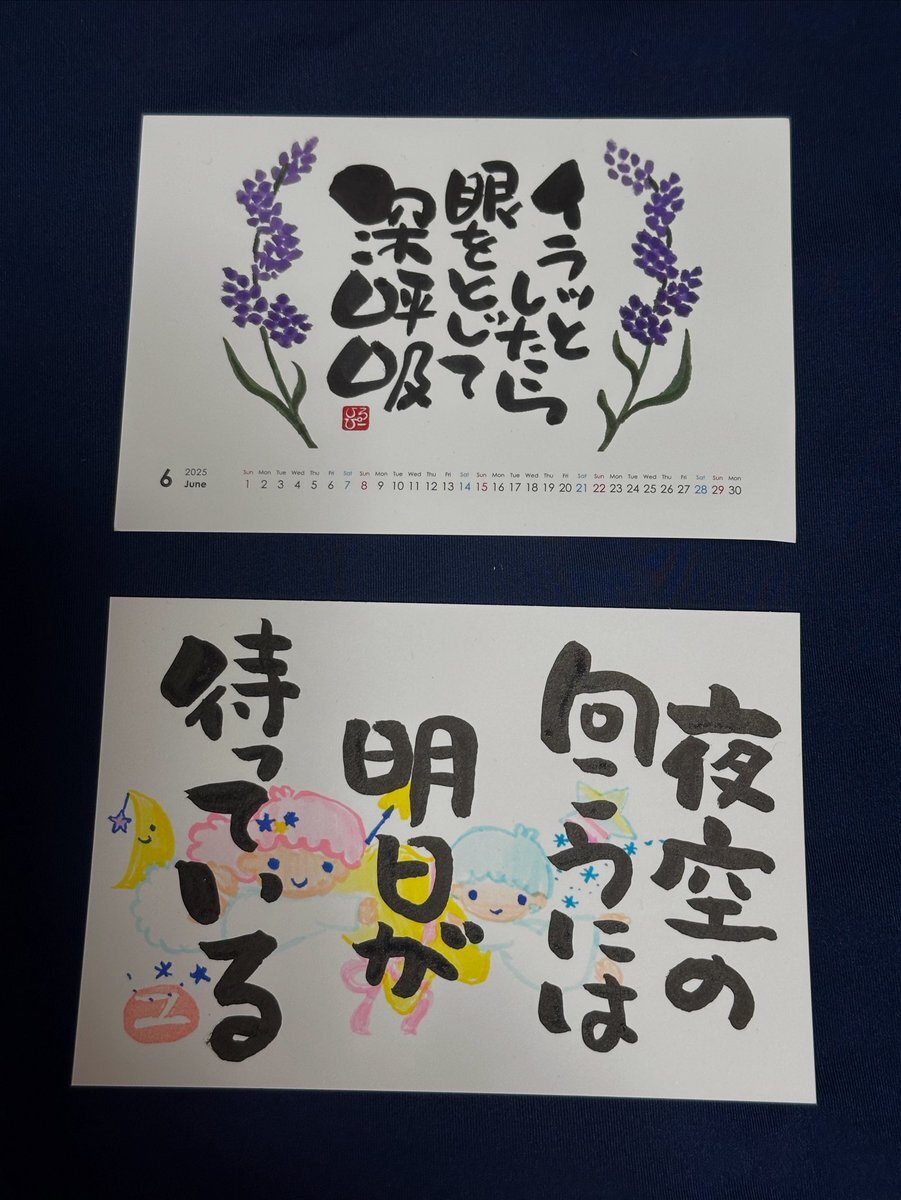 イラッと
したら
眼をとじて
深呼吸
ひろ
ぴー
6
2025
June
Sun Mon Tue Wed Thu Fri Sat Sun Mon Tue Wed Thu Fri Sat Sun Mon Tue Wed Thu Fri Sat Sun Mon Tue Wed Thu Fri Sat Sun Mon
1 2 3 4 5 6 7 8 9 10 11 12 13 14 15 16 17 18 19 20 21 22 23 24 25 26 27 28 29 30
夜空の
向こうには
明日が
待っている
ユ